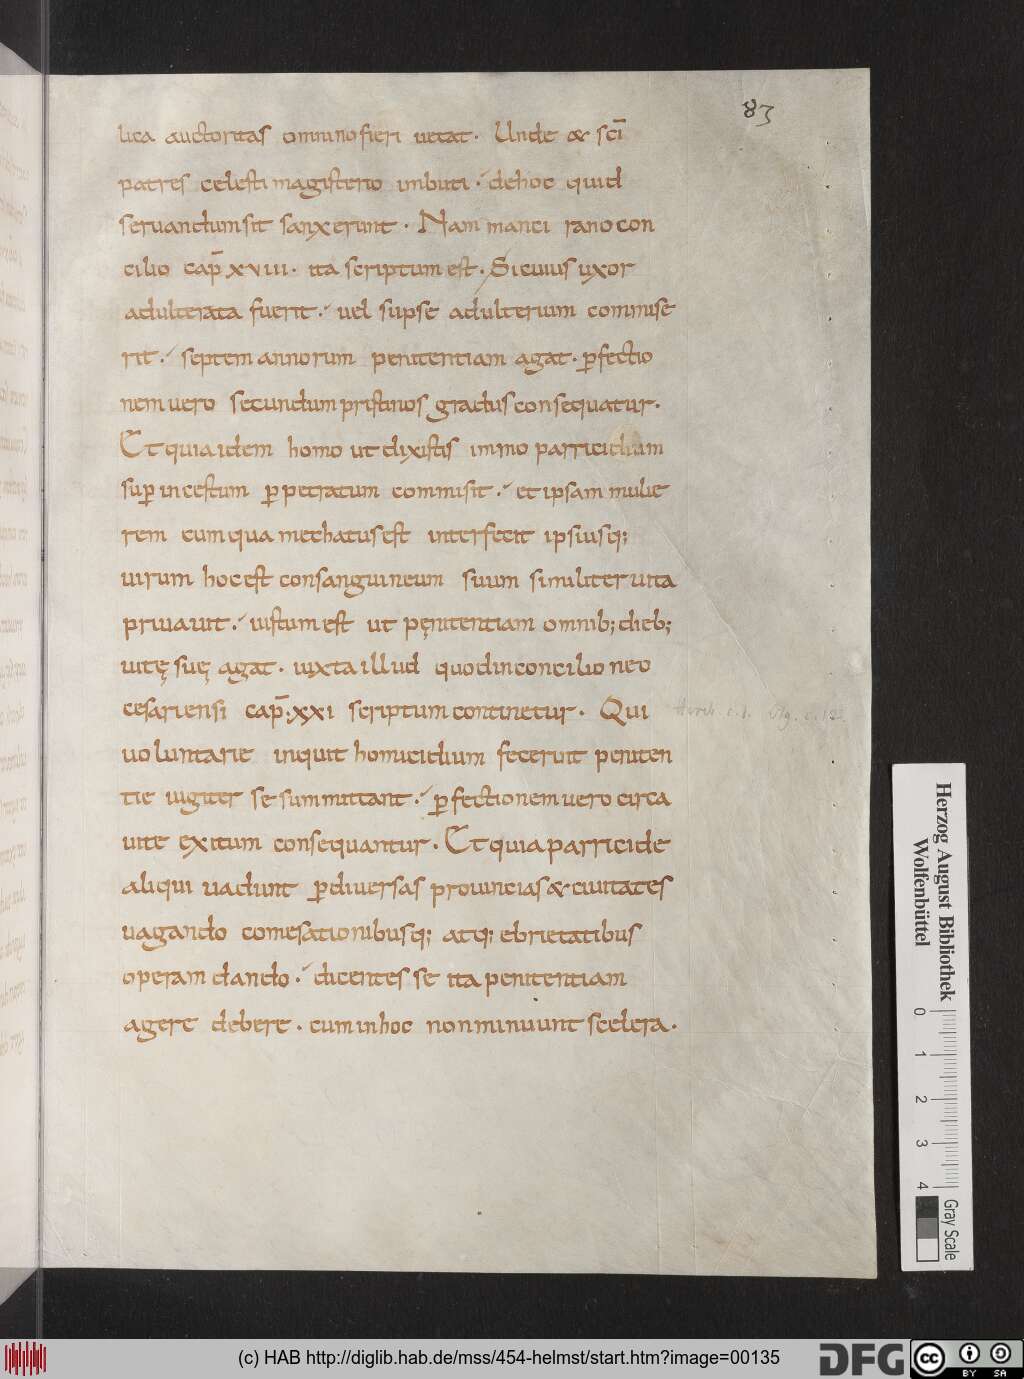 83
lica auctoritas omnino fieri uetat. Unde & sc̄i
patres celesti magisterio imbuti. dehoc quid
seruandum sit sanxerunt. Nam in anci rano con
cilio cap̄ xviii. ita scriptum est. Si cuius uxor
adulterata fuerit. uel sup se adulterium commise
rit. septem annorum penitentiam agat. p̲fectio
nem uero secundum pristinos gradus consequatur.
Et quia idem homo ut dixistis immo parricidium
sup̲ incestum p̲petratum commisit. et ipsam mulie
rem cum qua mechatus est interfecit ipsiusq;
uirum hoc est consanguineum suum similiter uita
priuauit. iustum est ut pęnitentiam omnib; dieb;
uitę suę agat. iuxta illud quod in concilio neo
cesariensi cap̄. xxi scriptum continetur. Qui
uoluntarie inquit homicidium fecerint peniten
tie iugiter se summittant. p̲fectionem uero circa
uite exitum consequantur. Et quia parricide
aliqui uadunt p̲ diuersas prouincias & ciuitates
uagando comesationibusq; atq; ebrietatibus
operam dando. dicentes se ita penitentiam
agere debere. cum in hoc non minuunt scelera.
Herzog August Bibliothek
Wolfenbüttel
0 1 2 3 4
Gray Scale
(c) HAB http://diglib.hab.de/mss/454-helmst/start.htm?image=00135
DFG
cc BY SA